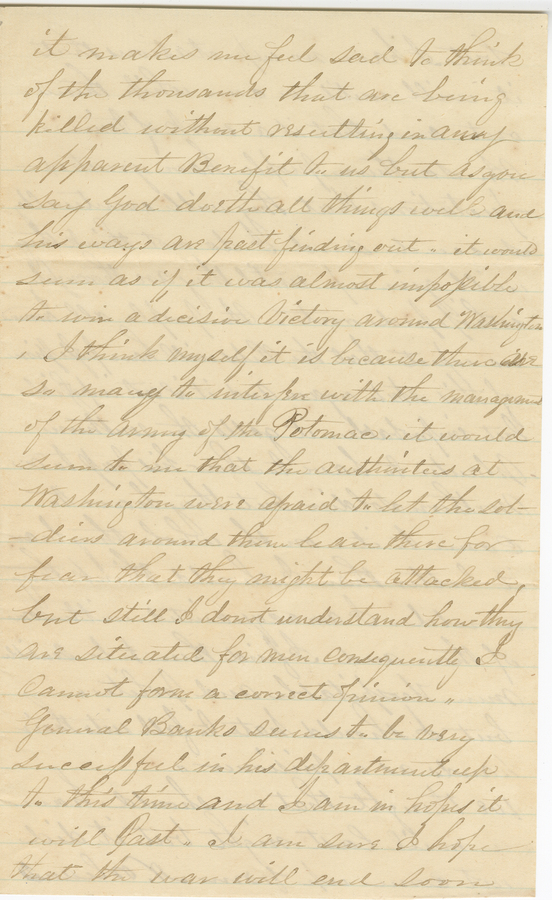 it makes me feel sad to think
of the thousands that are being
killed without resulting in any
apparent Benefit to us but as you
say God doeth all things well and
his ways are past finding out " it would
seem as if it was almost impossible
to win a decisive Victory around Washington
, I think myself it is because there are
so many to interfere with the management
of the Army of the Potomac, it would
seem to me that the authoriters at
Washington were afraid to let the sol-
-diers around there leave there for
fear that they might be attacked,
but still I dont understand how they
are situated for men consequently I
Cannot form a correct opinion "
General Banks seems to be very
successful in his department up
to this time and I am in hopes it
will Last " I am sure I hope
that the war will end soon